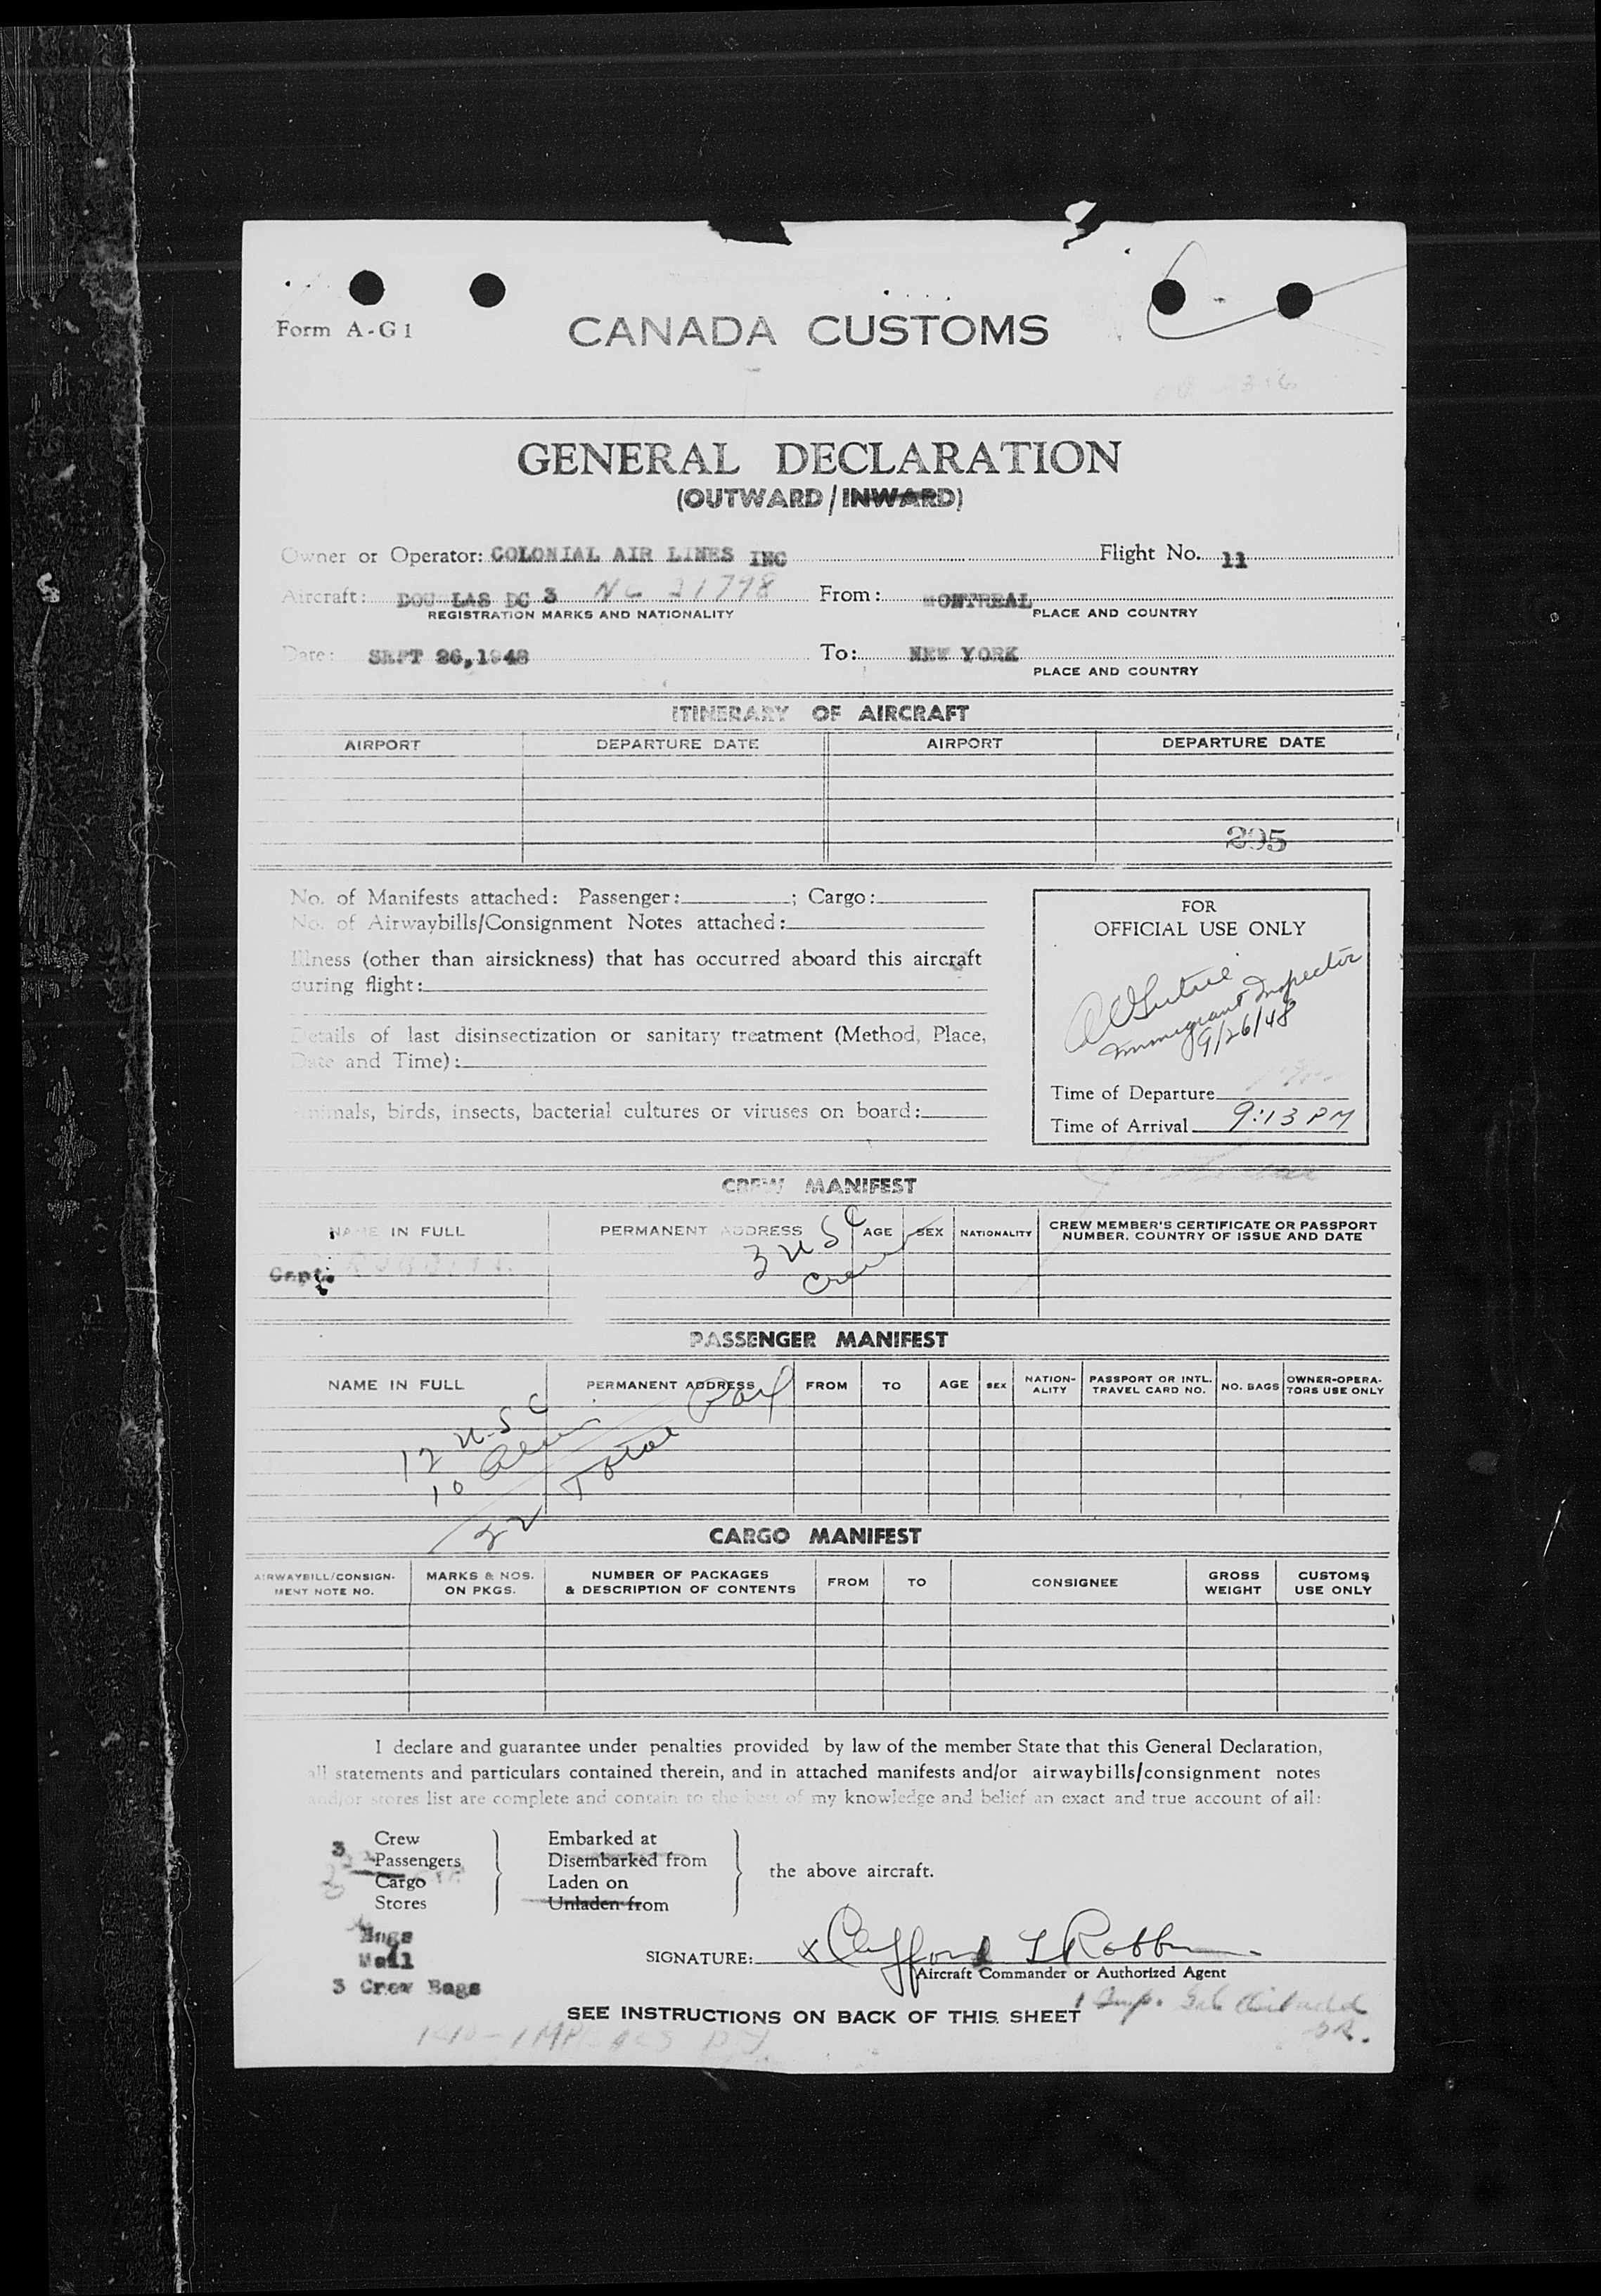 Form A-G1
CANADA CUSTOMS
GENERAL DECLARATION
(OUTWARD/INWARD)
Owner or Operator: COLONIAL AIR LINES INC Flight No. 11
Aircraft: DOUGLAS DC 3 NC 21778 From: MONTREAL
REGISTRATION MARKS AND NATIONALITY PLACE AND COUNTRY
Date: SEPT 26,1948 To: NEW YORK
PLACE AND COUNTRY
ITINERARY OF AIRCRAFT
AIRPORT DEPARTURE DATE AIRPORT DEPARTURE DATE
295
No. of Manifests attached: Passenger: ; Cargo:
No. of Airwaybills/Consignment Notes attached:
Illness (other than airsickness) that has occurred aboard this aircraft
during flight:
Details of last disinsectization or sanitary treatment (Method, Place,
Date and Time):
Animals, birds, insects, bacterial cultures or viruses on board:
FOR
OFFICIAL USE ONLY
Immigrant Inspector
9/26/48
Time of Departure
Time of Arrival 9:13 PM
CREW MANIFEST
NAME IN FULL PERMANENT ADDRESS AGE SEX NATIONALITY CREW MEMBER'S CERTIFICATE OR PASSPORT
NUMBER, COUNTRY OF ISSUE AND DATE
3 U S C
Crew
Capt.
PASSENGER MANIFEST
NAME IN FULL PERMANENT ADDRESS FROM TO AGE SEX NATION-
ALITY PASSPORT OR INTL.
TRAVEL CARD NO. NO. BAGS OWNER-OPERA-
TORS USE ONLY
12 U.S C
10 Alien
22 Total Pax
CARGO MANIFEST
AIRWAYBILL/CONSIGN-
MENT NOTE NO. MARKS & NOS.
ON PKGS. NUMBER OF PACKAGES
& DESCRIPTION OF CONTENTS FROM TO CONSIGNEE GROSS
WEIGHT CUSTOMS
USE ONLY
I declare and guarantee under penalties provided by law of the member State that this General Declaration,
all statements and particulars contained therein, and in attached manifests and/or airwaybills/consignment notes
and/or stores list are complete and contain to the best of my knowledge and belief an exact and true account of all:
3 Crew Embarked at
Passengers Disembarked from
the above aircraft.
Cargo Laden on
Stores Unladen from
Bags
Mail
3 Crew Bags
SIGNATURE: x Clifford L Robb
Aircraft Commander or Authorized Agent
SEE INSTRUCTIONS ON BACK OF THIS SHEET